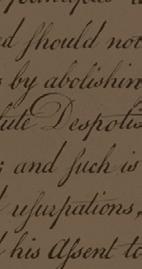 ed should not
by abolishin
lute Despotis
; and such is
usurpations,
his Assent to